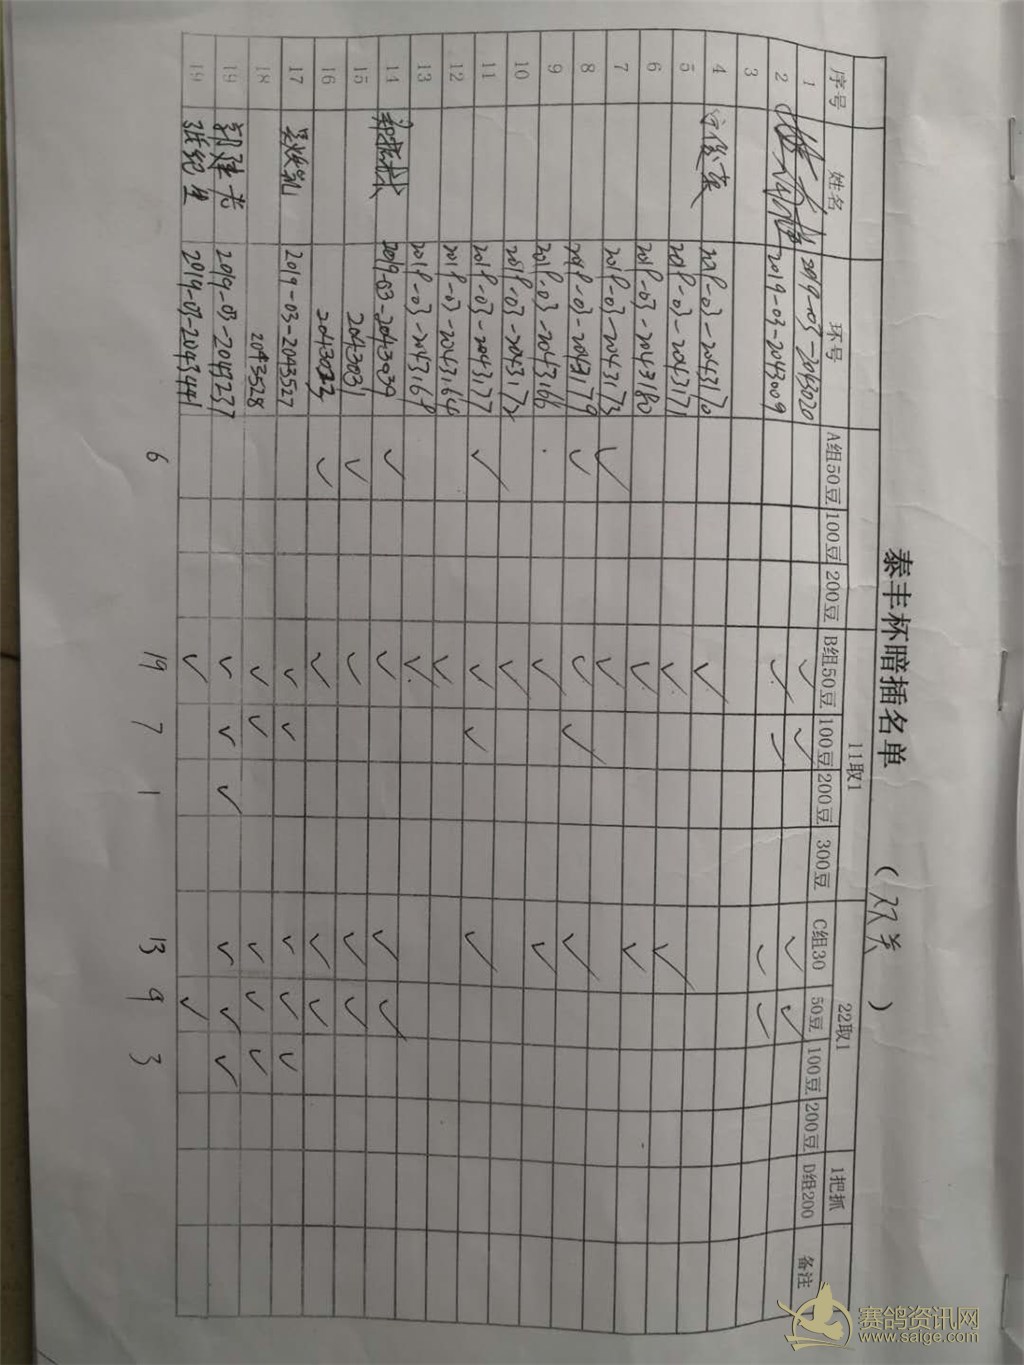 泰丰杯暗插名单 (双关)
11取1 22取1 1把抓
序号 姓名 环号 A组50豆 100豆 200豆 B组50豆 100豆 200豆 300豆 C组30 50豆 100豆 200豆 D组200 备注
1 2019-03-2043020 ✓ ✓ ✓ ✓
2 2019-03-2043009 ✓ ✓ ✓ ✓
3
4 2018-03-2043170 ✓
5 2018-03-2043171 ✓ ✓
6 2018-03-2043180 ✓ ✓
7 2018-03-2043173 ✓ ✓
8 2018-03-2043179 ✓ ✓ ✓ ✓
9 2018-03-2043166 ✓ ✓
10 2018-03-2043172 ✓
11 2018-03-2043177 ✓ ✓ ✓ ✓
12 2018-03-2043164 ✓
13 2018-03-2043168 ✓
14 2019-03-2043039 ✓ ✓ ✓ ✓
15 2043031 ✓ ✓ ✓ ✓
16 2043033 ✓ ✓ ✓ ✓
17 2019-03-2043527 ✓ ✓ ✓ ✓ ✓
18 2043528 ✓ ✓ ✓ ✓ ✓
19 郭建芳 2019-03-2047237 ✓ ✓ ✓ ✓ ✓ ✓
19 张纪星 2019-03-2043441 ✓ ✓
6 19 7 1 13 9 3
赛鸽资讯网
www.saige.com